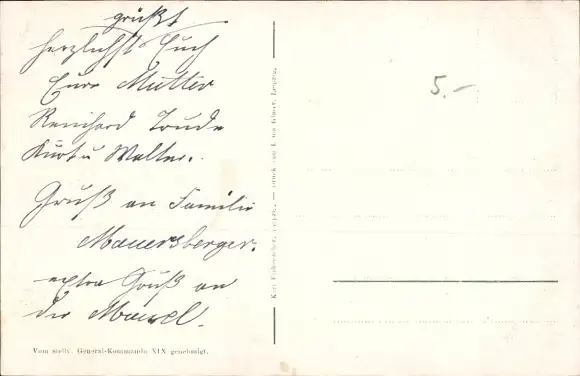 grüßt
herzlichst Euch
Eure Mutter
Reinhard Trude
Kurt u Walter.
Gruß an Familie
Mauersberger.
extra Gruß an
die
5.-
Vom stellv. General-Kommando XIX genehmigt.
Leipzig. — Druck von
Leipzig.